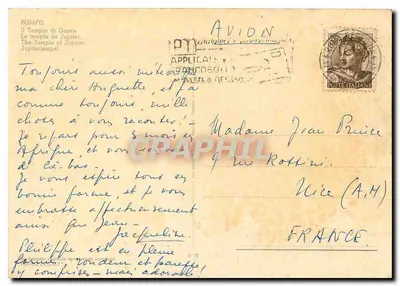 POMPEI
Il Tempio di Giove
Le temple de Jupiter
The Temple of Jupiter
Jupitertempel
AVION
POSTE ITALIANE
Toujours aussi météore
ma chère Huguette, et j'ai
comme toujours, mille
choses à vous raconter!
Je repars pour 3 mois en
Afrique et vous
de là-bas.
Je vous espère tous en
bonne forme, et je vous
embrasse affectueusement
ainsi que Jean
Jacqueline.
Philippe est en pleine
forme, rondeur et
y comprises - mais adorable!
Madame Jean Prince
9 rue Rossini
Nice (A.M)
FRANCE
CPHAPHIL.com